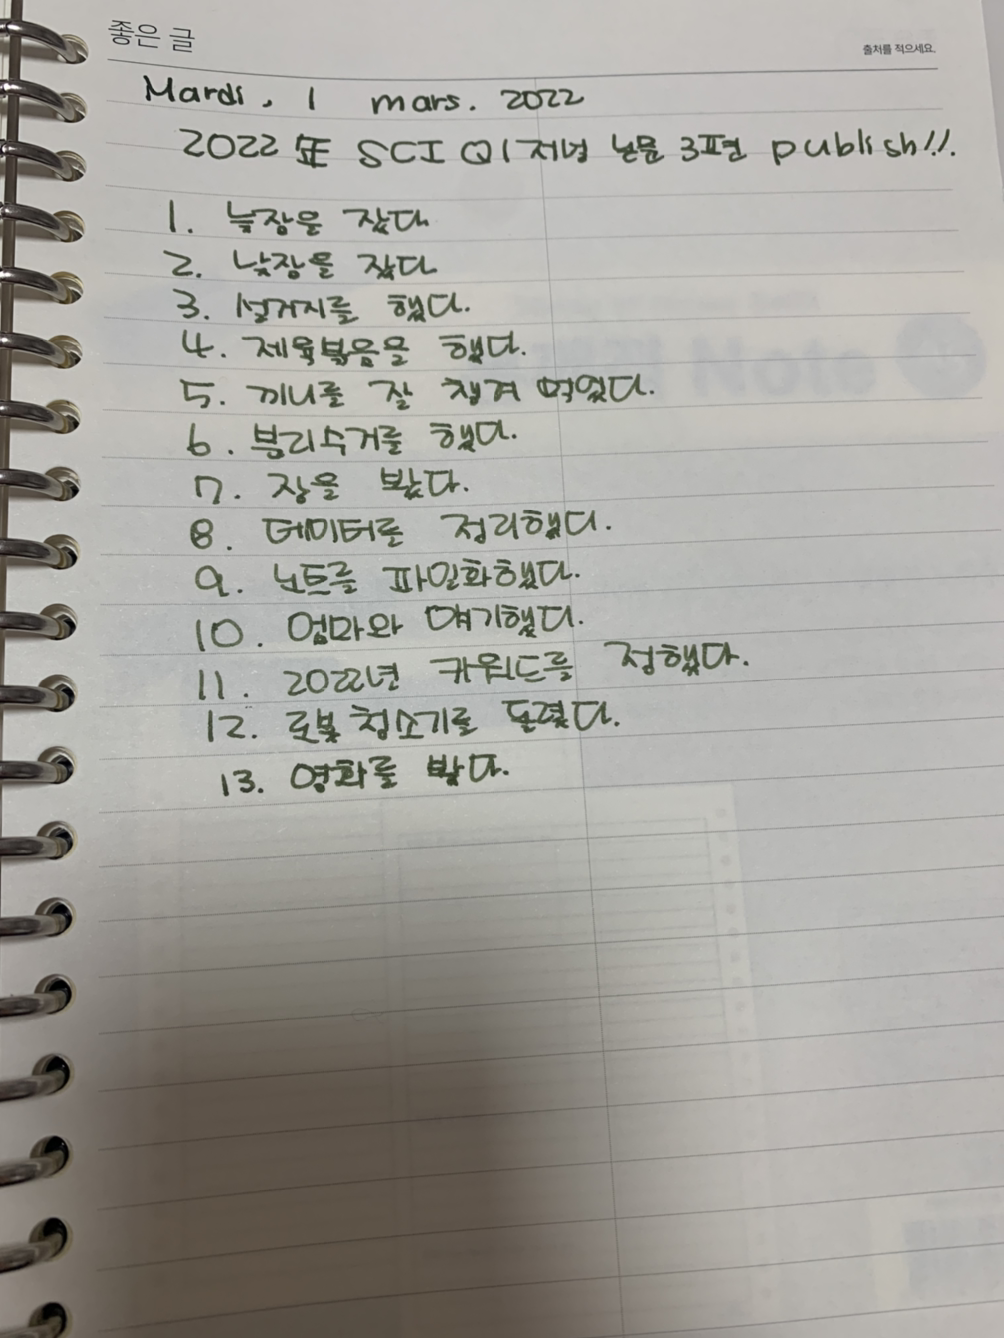 좋은 글
출처를 적으세요.
Mardi, 1 mars. 2022
2022年 SCI Q1 저널 논문 3편 publish!!.
1. 늦잠을 잤다
2. 낮잠을 잤다
3. 설거지를 했다.
4. 제육볶음을 했다.
5. 끼니를 잘 챙겨 먹었다.
6. 분리수거를 했다.
7. 장을 봤다.
8. 데이터를 정리했다.
9. 노트를 파일화했다.
10. 엄마와 얘기했다.
11. 2022년 키워드를 정했다.
12. 로봇청소기를 돌렸다.
13. 영화를 봤다.